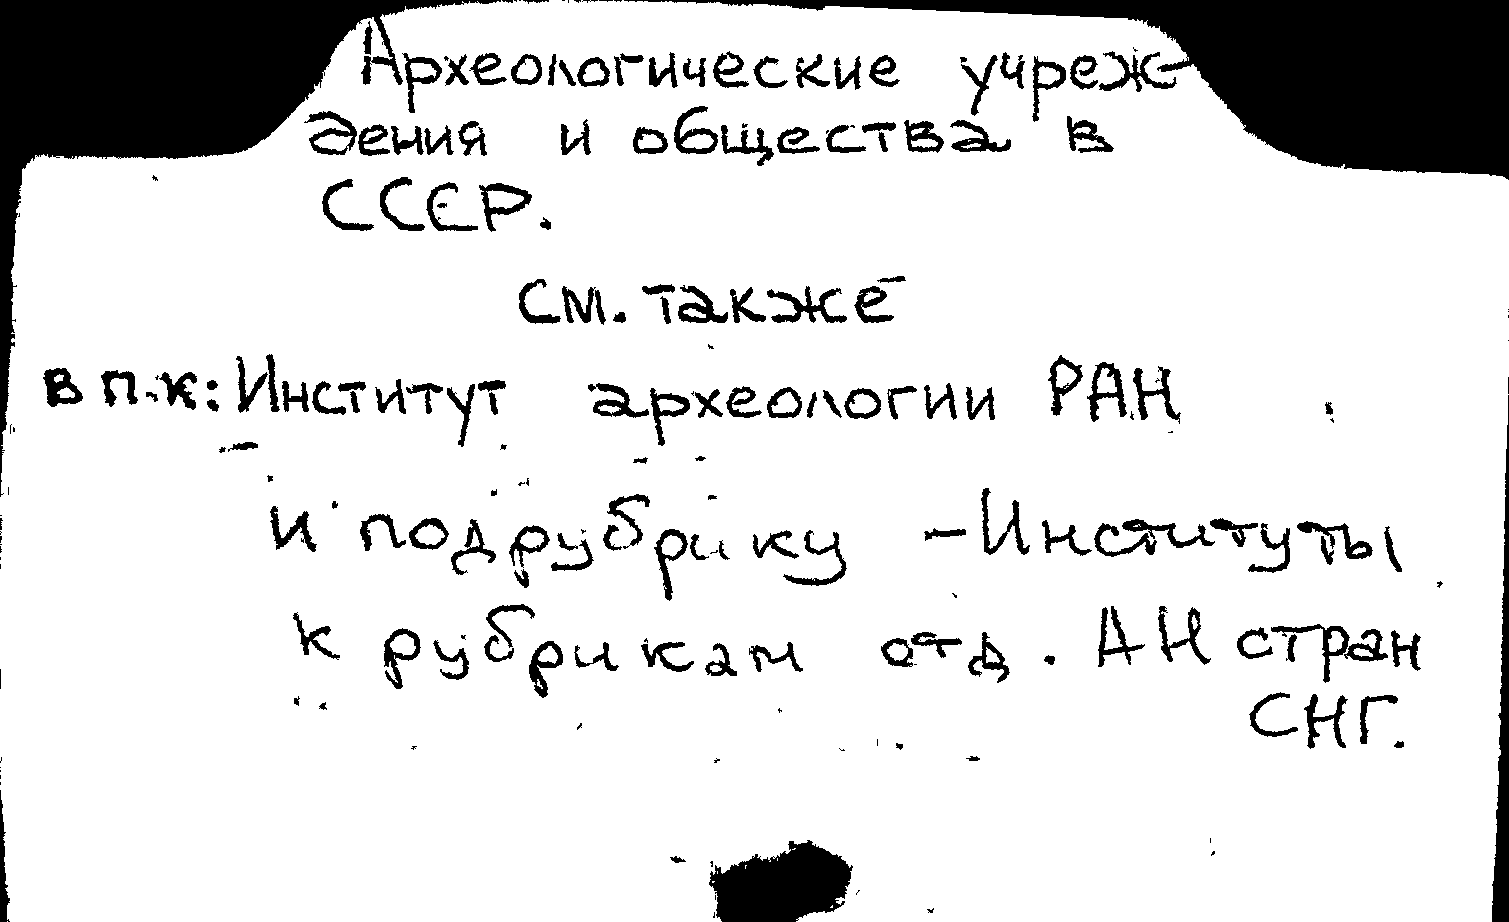 Археологические учреж-
дения и общества в
СССР.
см. также
в п.к: Институт археологии РАН
и подрубрику - Институты
к рубрикам отд. АН стран
СНГ.